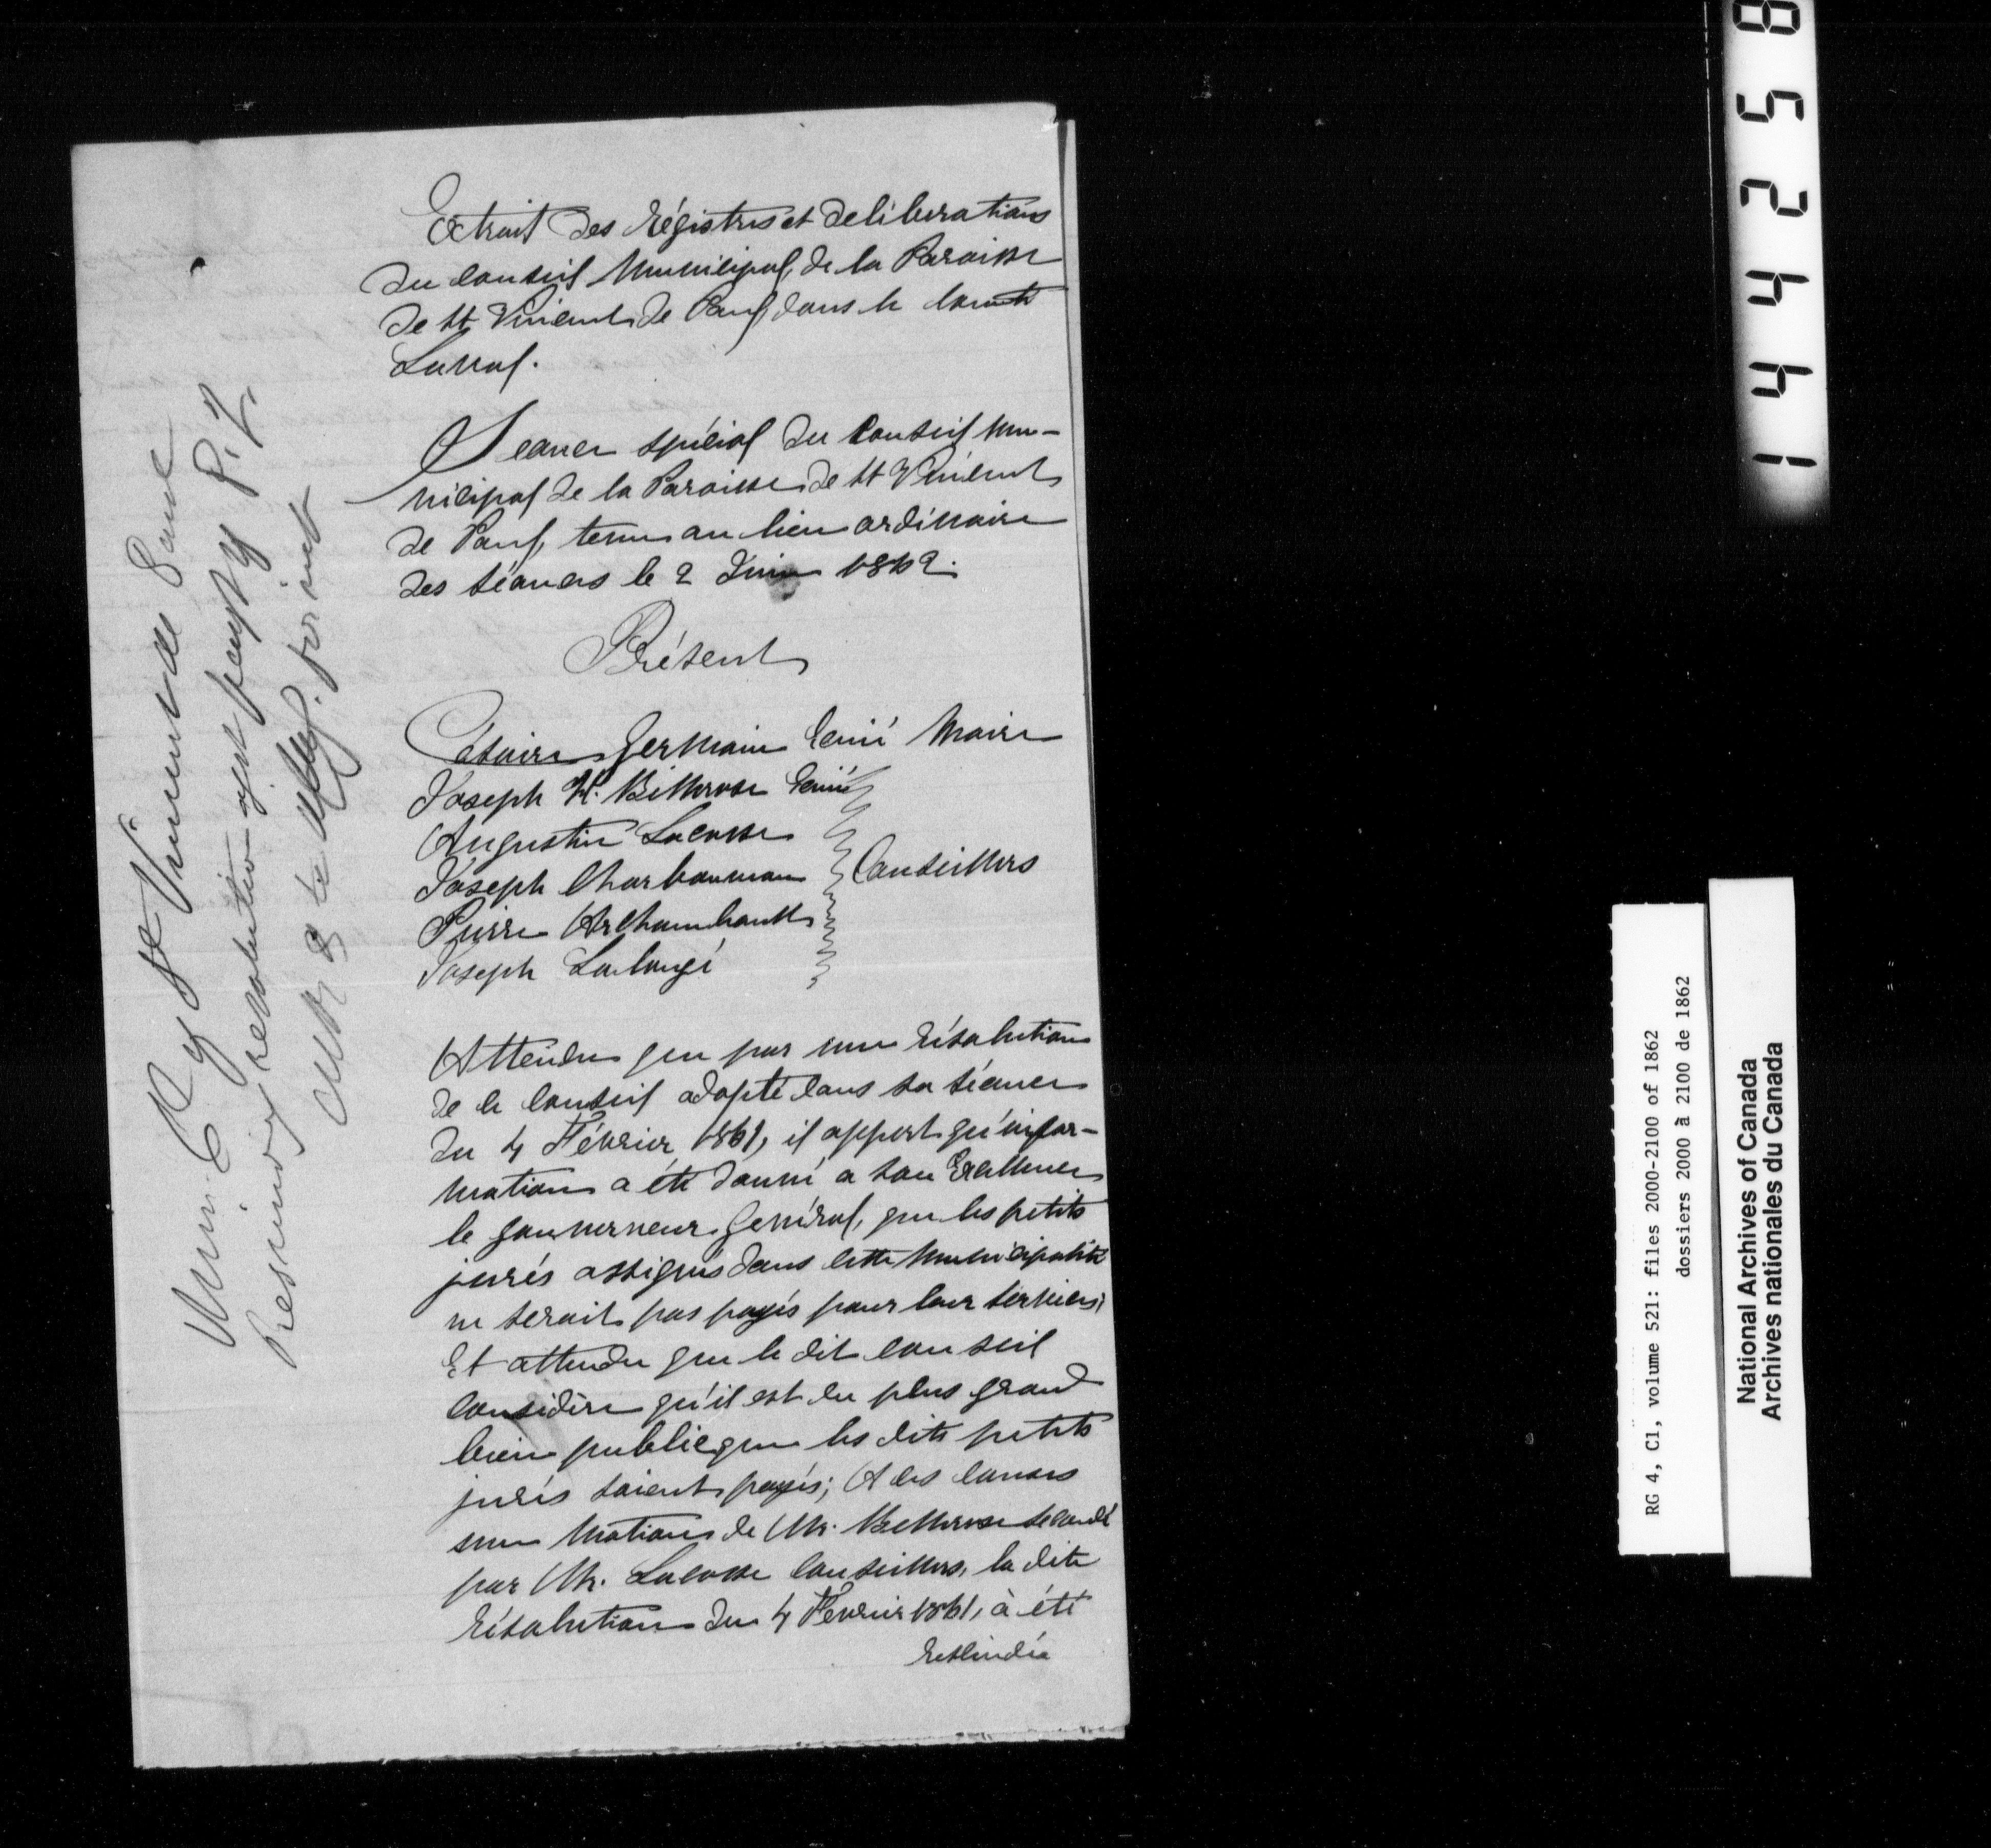 Extrait des Régistres et deliberations
du Conseil Municipal, de la Paroisse
de St Vincent de Paul, dans le Comté
Laval.
Seance spécial du Conseil Mu-
nicipal de la Paroisse de St Vincent
de Paul, tenu au lieu ordinaire
des séances le 2 Juin 1862.
Présent
Césaire Germain Ecuié Maire
Joseph H. Bellerose Ecuié
Augustin Lacasse
Joseph Charbonneau
Conseillers
Pierre Archambault
Joseph Labongé
Attendu que par une résolution
de ce Conseil adopté dans sa séance
du 4 Février 1861, il appert qu'infor-
mation a été donné a Son Excellence
le Gouverneur Général, que les petits
jurés assignés dans cette Municipalité
ne serait pas payés pour leur services;
Et attendu que le dit Conseil
Considère qu'il est du plus grand
bien public que les dits petits
jurés soient payés; A ces causes
sur Motion de Mr. Bellerose secondé
par Mr. Lacasse Conseillers, la dite
résolution du 4 Fevrier 1861, à été
Rescindée
Mun. Cy St Vincent de Paul
Rescinding resolution agst paymt of P. J.
RG 4, C1, volume 521: files 2000-2100 of 1862
dossiers 2000 à 2100 de 1862
National Archives of Canada
Archives nationales du Canada